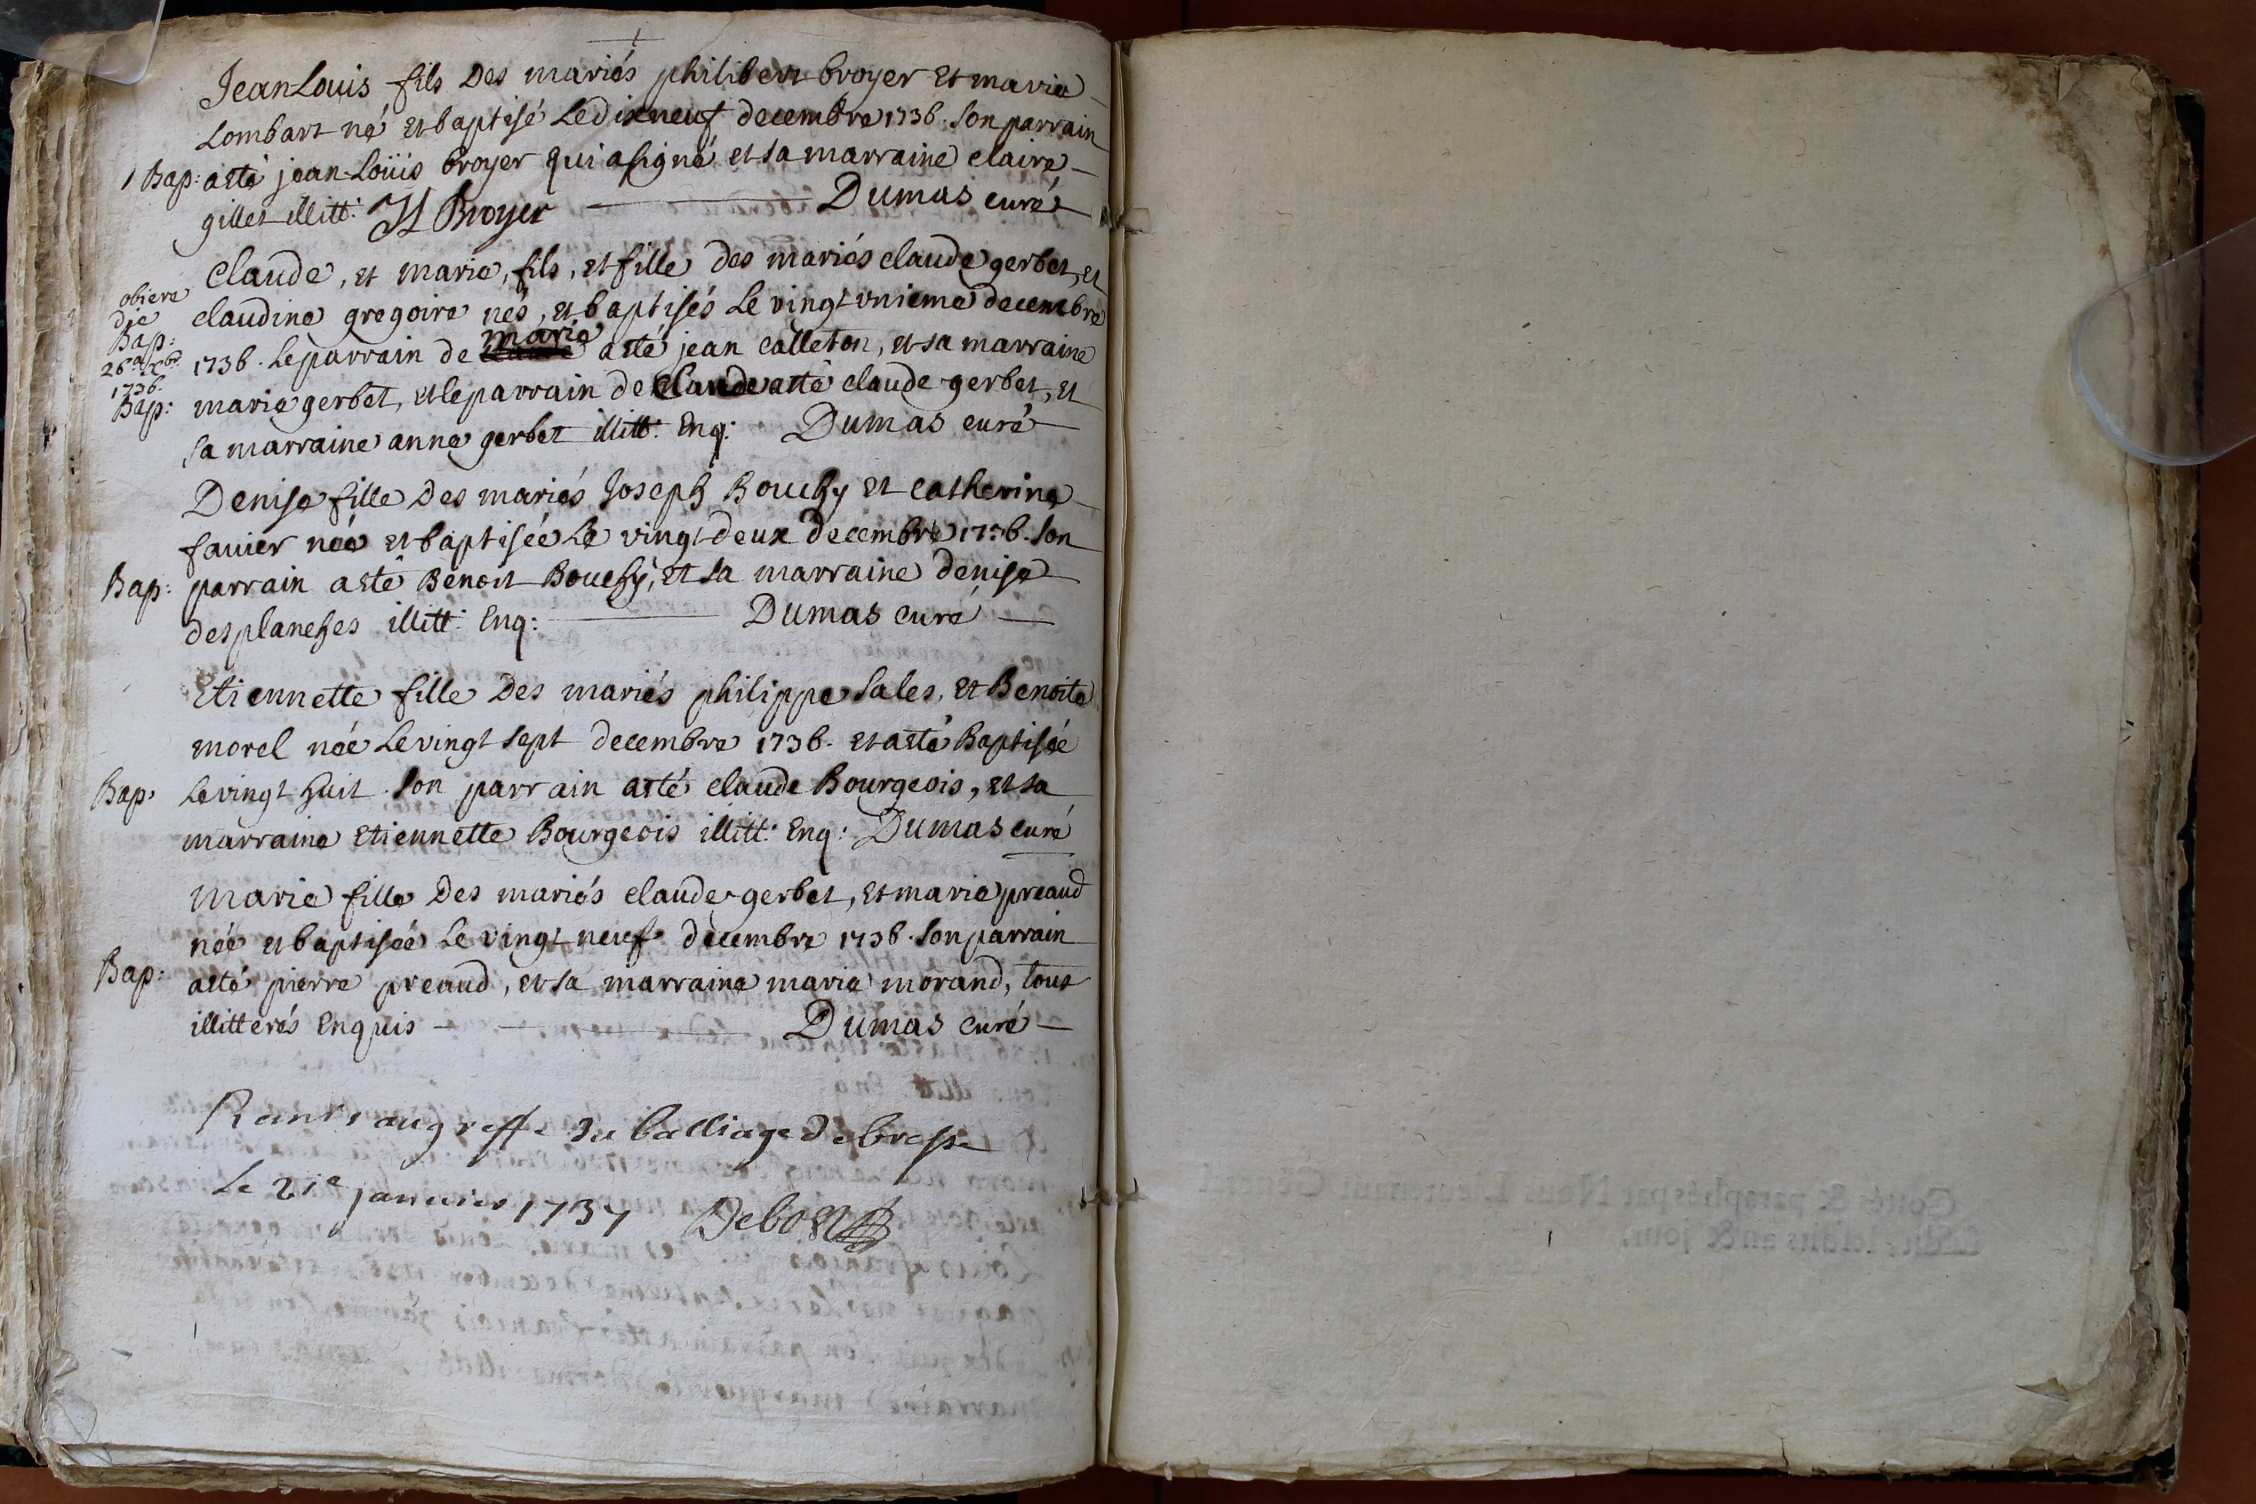 Jean Louis fils Des mariés philibert broyer Et marie
Lombart né et baptisé Le dixneuf decembre 1736. Son parrain
1 Bap: a eté jean Loüis broyer qui a signé et sa marraine claire
gillet illitt: JL Broyer Dumas curé
Claude, et marie, fils, et fille des mariés claude gerbet, et
obiere die 26a xbr. 1736.
claudine gregoire nés, et baptisés Le vingt unieme decembre
Bap: 1736. Le parrain de marie a eté jean calleton, et sa marraine
Bap: marie gerbet, et le parrain de Claude a eté claude gerbet, et
sa marraine anne gerbet illitt: Enq: Dumas curé
Denise fille Des mariés Joseph Bouchy Et catherine
favier née et baptisée Le vingt deux decembre 1736. Son
Bap: parrain a eté Benoit Bouchy, et sa marraine denise
desplanches illitt: Enq: Dumas curé
Etiennette fille Des mariés philippe Sales, Et Benoite
morel née Le vingt sept decembre 1736. et a eté Baptisée
Bap: Le vingt huit. Son parrain a eté claude Bourgeois, et sa
marraine Etiennette Bourgeois illitt: Enq: Dumas curé
Marie fille Des mariés claude gerbet, et marie preaud
née et baptisée Le vingt neuf decembre 1736. Son parrain
Bap: a eté pierre preaud, et sa marraine marie morand, tous
illitterés Enquis Dumas curé
Remis au greffe du balliage de bresse
Le 21e januier 1737 Debost